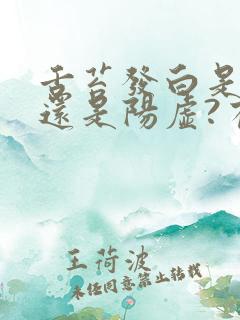 舌苔發白是
還是陽虛?
王荷波
未經同意禁止轉載